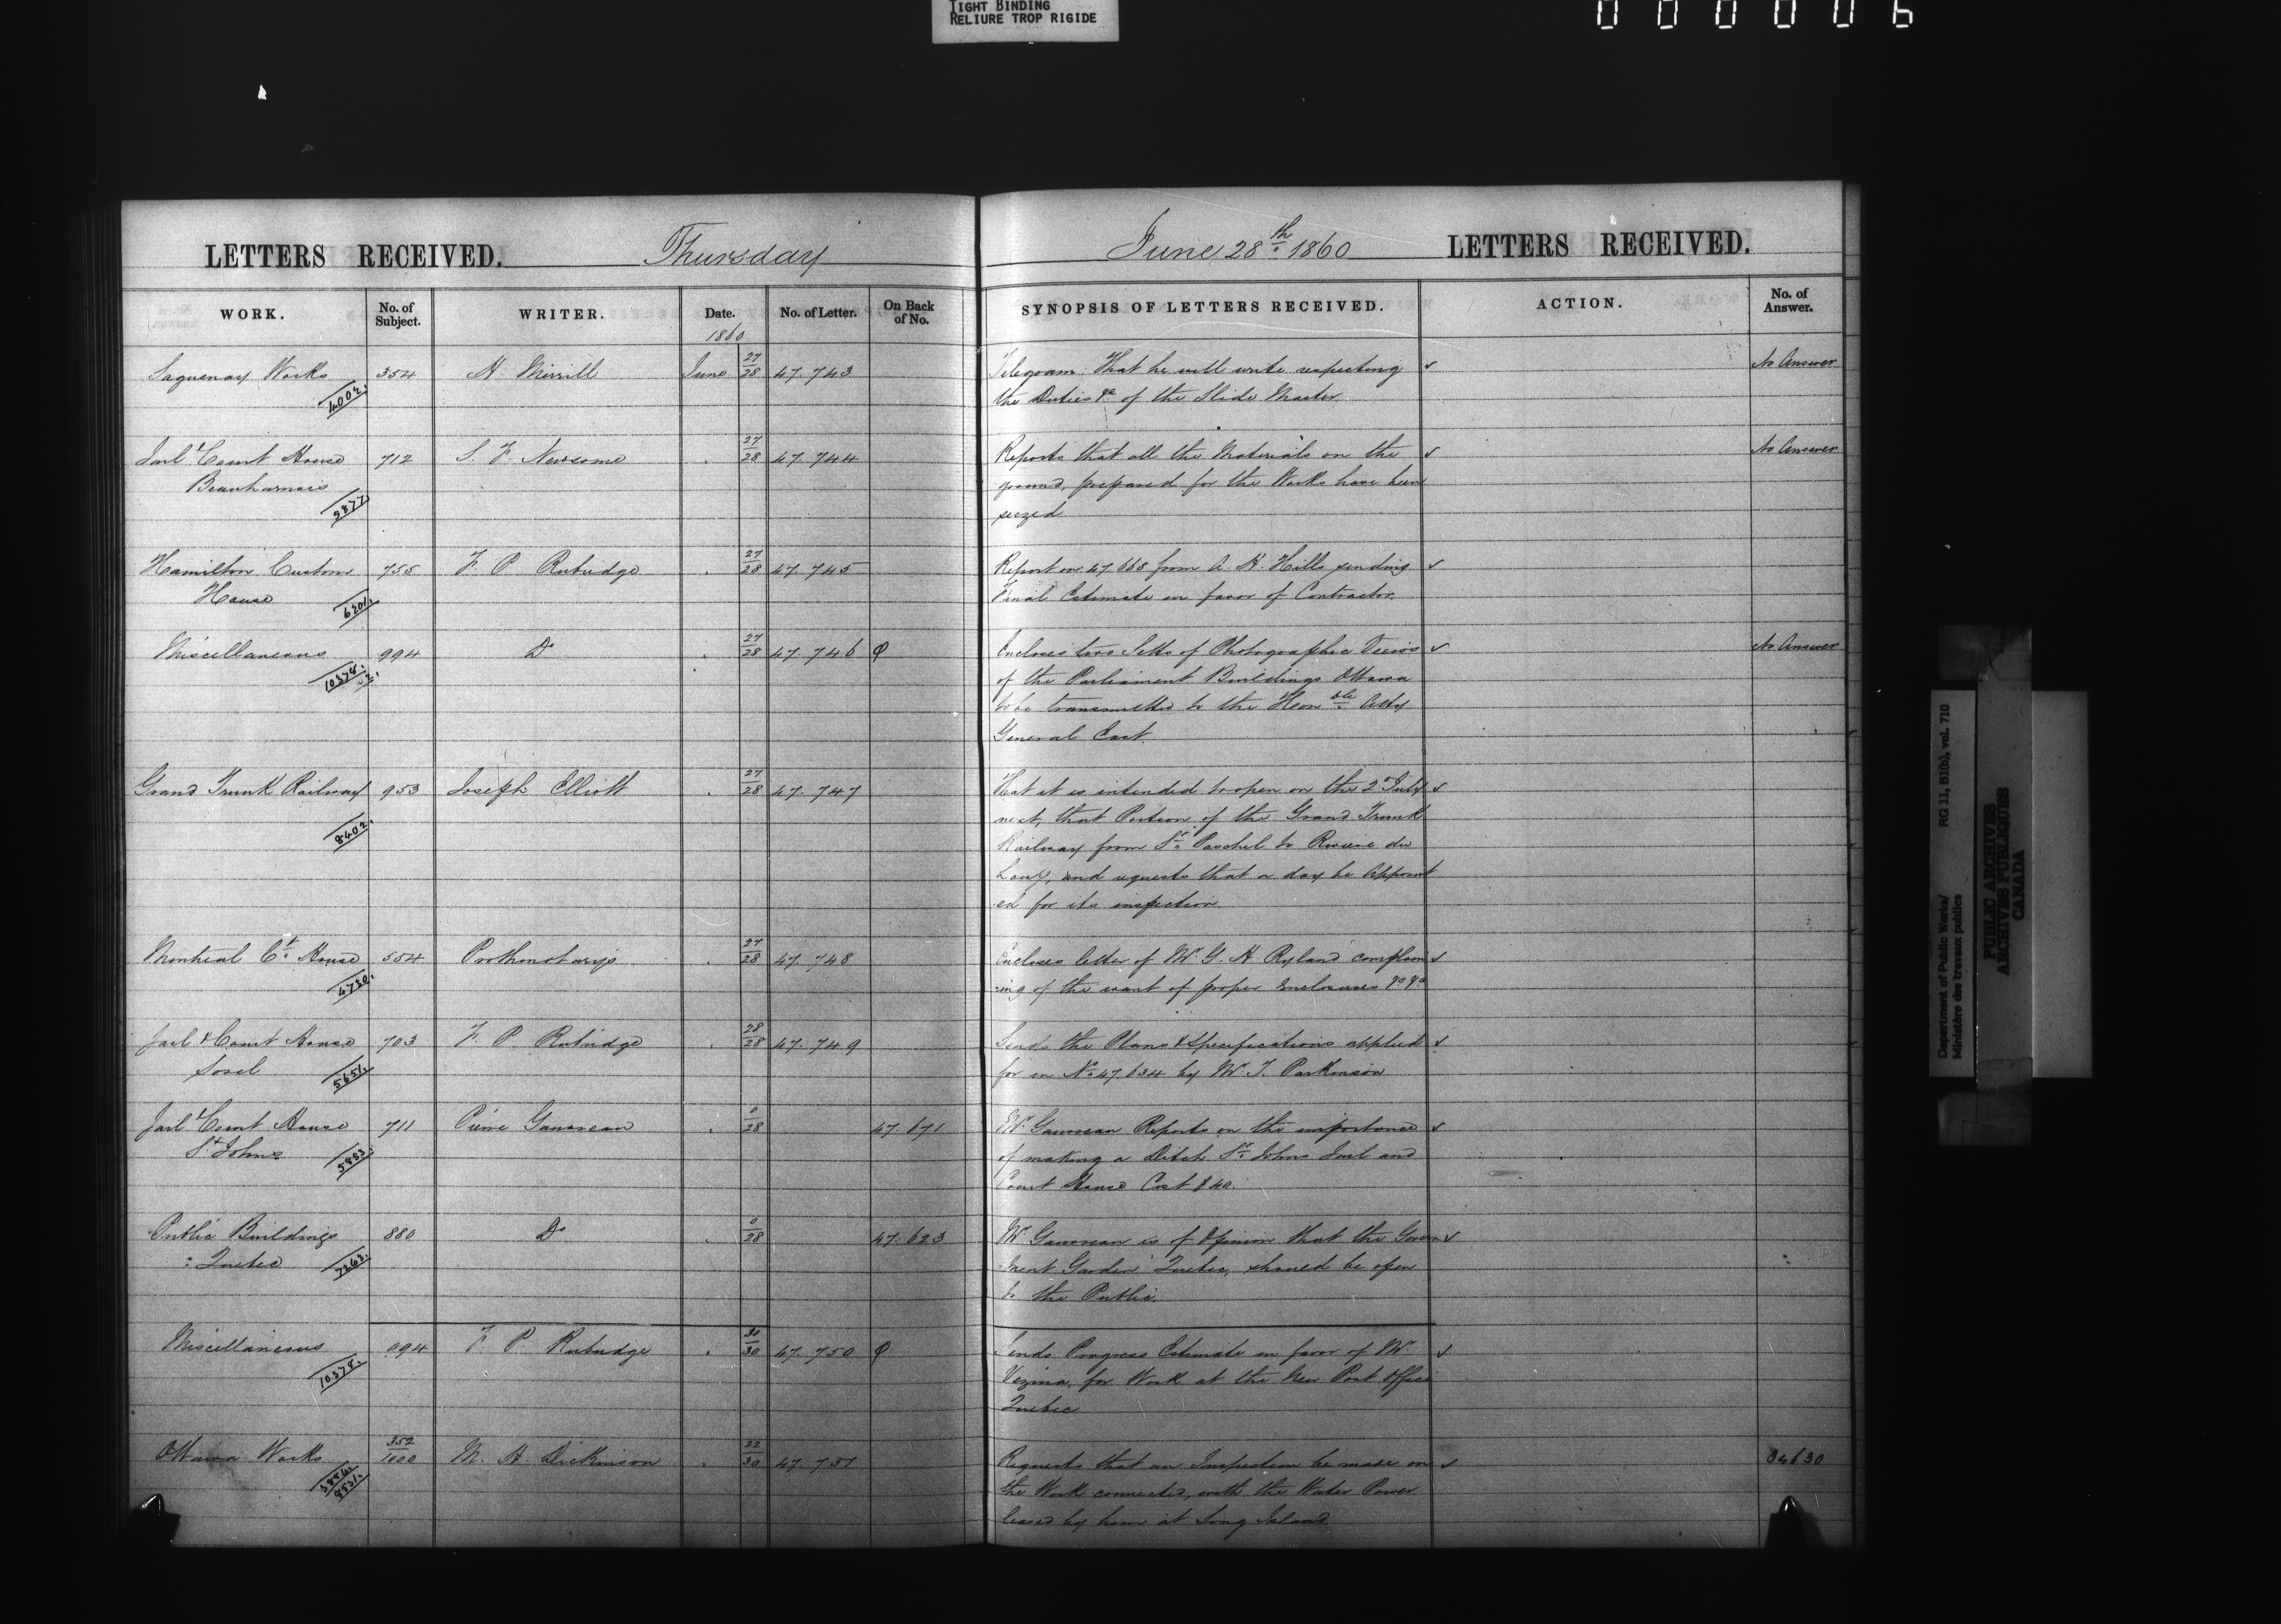 TIGHT BINDING
RELIURE TROP RIGIDE
000006
LETTERS RECEIVED. Thursday June 28th 1860 LETTERS RECEIVED.
WORK. No. of Subject. WRITER. Date. No. of Letter. On Back of No. SYNOPSIS OF LETTERS RECEIVED. ACTION. No. of Answer.
1860
Saguenay Works 354 H. Merrill June 27/28 47.743 Telegram. That he will write respecting ✓ No Answer
4002. the Duties &c of the Slide Master.
Jail & Court House 712 S. F. Newsome . 27/28 47.744 Reports that all the Materials on the ✓ No Answer
Beauharnois ground, prepared for the Works have been
5877 seized
Hamilton Custom 755 F. P. Rubidge . 27/28 47.745 Report on 47.668 from A. H. Hills sending ✓
House 6201. Final Estimate in favor of Contractor.
Miscellaneous 994 Do . 27/28 47.746 φ Encloses two Setts of Photographic Views ✓ No Answer
10378. of the Parliament Buildings Ottawa
to be transmitted to the Honble Atty
General East.
Grand Trunk Railway 953 Joseph Elliott . 27/28 47.747 That it is intended to open on the 2d July ✓
8402. next, that Portion of the Grand Trunk
Railway from St. Paschel to Riviere du
Loup, and requests that a day be Appoint
ed for its inspection.
Montreal Ct. House 554 Prothonotarys . 27/28 47.748 Encloses letter of Mr G. H. Ryland complain ✓
4730. =ing of the want of proper Enclosures &c &c
Jail & Court House 703 F. P. Rubidge . 28/28 47.749 Sends the Plans & Specifications applied ✓
Sorel 5651. for in No 47.634 by Mr J. Parkinson
Jail & Court House 711 Pierre Gauvreau . 0/28 47.671 Mr Gauvreau Reports on the importance ✓
St Johns 5853. of making a Ditch St. Johns Jail and
Court House Cost $40.
Public Buildings 880 Do . 0/28 47.623 Mr Gauvreau is of Opinion that the Govern ✓
: Quebec 7263. ment Garden Quebec, should be open
to the Public.
Miscellaneous 994 F. P. Rubidge . 30/30 47.750 φ Sends Progress Estimate in favor of Mr ✓
10378. Vezina, for Work at the New Post Office
Quebec
Ottawa Works 352/1000 M. H. Dickinson . 22/30 47.751 Requests that an Inspection be made on ✓ 34630
the Work connected, with the Water Power
leased by him at Long Island
Department of Public Works/ RG 11, B1(b), vol. 710
Ministère des travaux publics
PUBLIC ARCHIVES
ARCHIVES PUBLIQUES
CANADA